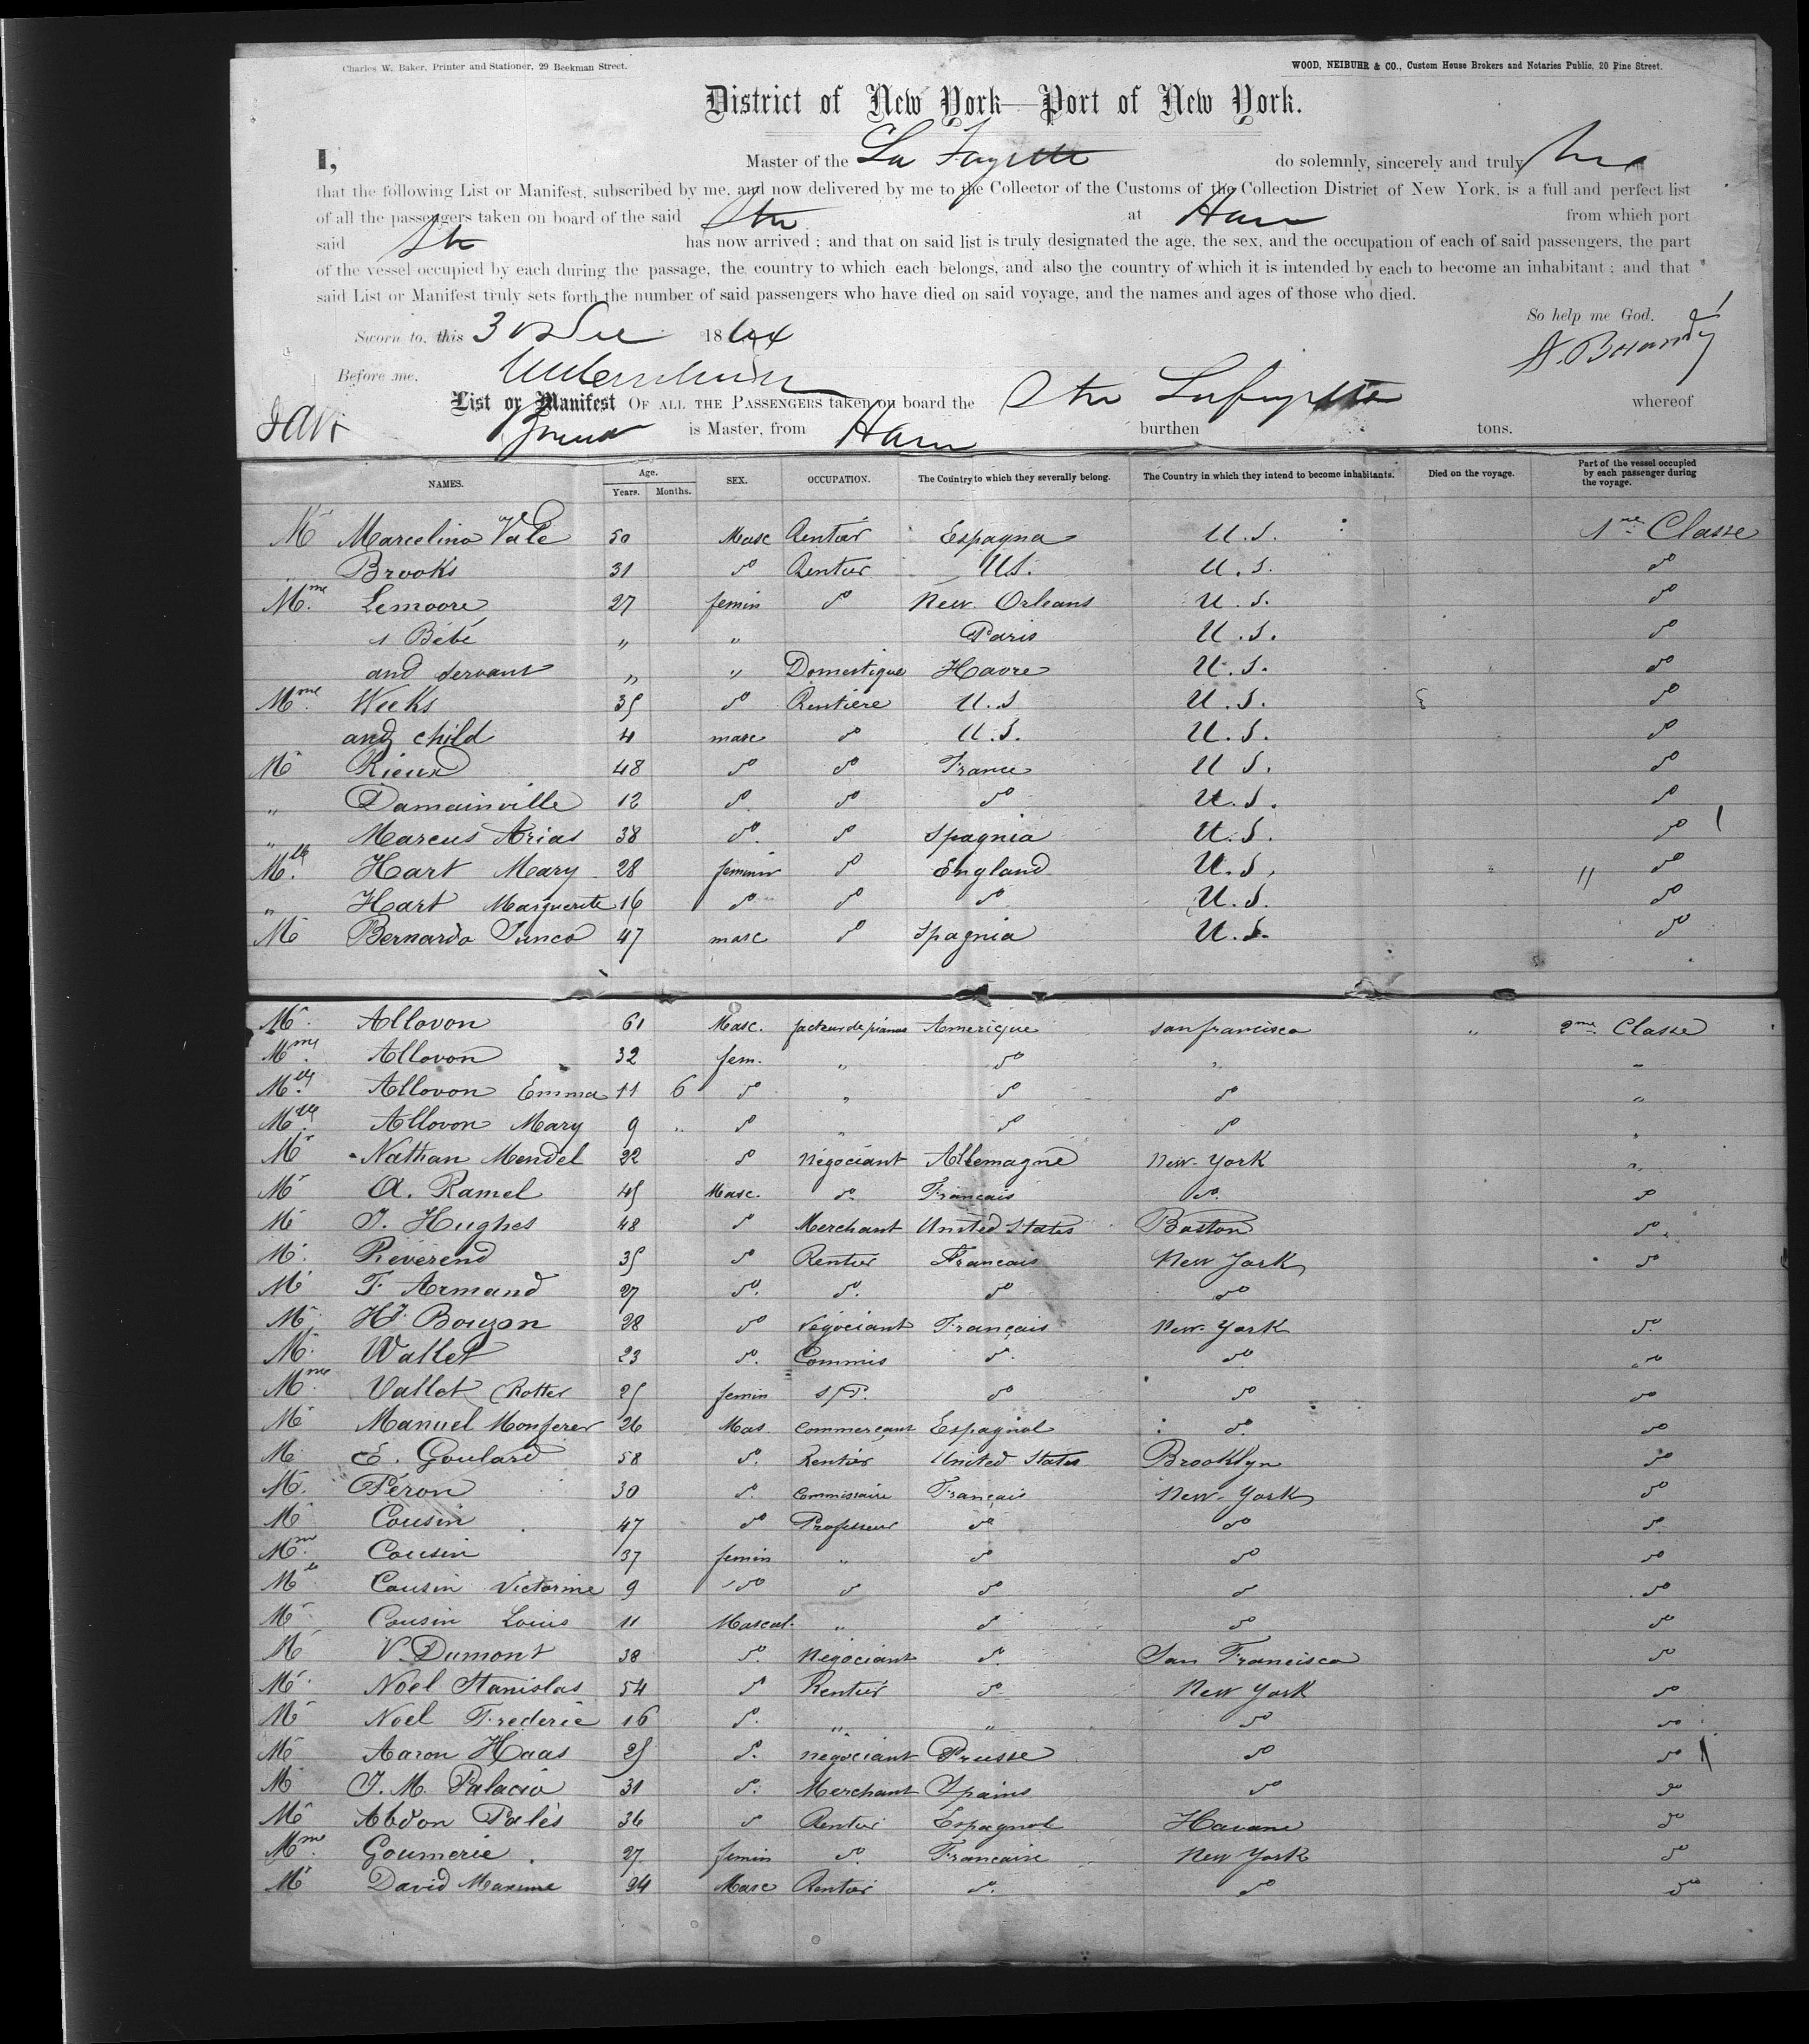 Charles W. Baker, Printer and Stationer, 29 Beekman Street.
WOOD, NEIBUHR & CO., Custom House Brokers and Notaries Public, 20 Pine Street.
District of New York—Port of New York.
I, Master of the La Fayette do solemnly, sincerely and truly
that the following List or Manifest, subscribed by me, and now delivered by me to the Collector of the Customs of the Collection District of New York, is a full and perfect list
of all the passengers taken on board of the said Str at Havre from which port
said Str has now arrived ; and that on said list is truly designated the age, the sex, and the occupation of each of said passengers, the part
of the vessel occupied by each during the passage, the country to which each belongs, and also the country of which it is intended by each to become an inhabitant ; and that
said List or Manifest truly sets forth the number of said passengers who have died on said voyage, and the names and ages of those who died.
So help me God.
Sworn to, this 30 Dec 1864
Before me,
List or Manifest OF ALL THE PASSENGERS taken on board the Str Lafayette whereof
is Master, from Havre burthen tons.
NAMES. Age. Years. Months. SEX. OCCUPATION. The Country to which they severally belong. The Country in which they intend to become inhabitants. Died on the voyage. Part of the vessel occupied by each passenger during the voyage.
Mr Marcelino Vale 50 Masc Rentier Espagna U.S. 1re Classe
" Brooks 31 do Rentier U.S. U.S. do
Mme Lemoore 27 femin do New Orleans U.S. do
1 Bébé " " Paris U.S. do
and servant " " Domestique Havre U.S. do
Mme Weeks 35 do Rentière U.S U.S. do
and child 4 masc do U.S. U.S. do
Mr Rieux 48 do do France U S. do
" Damainville 12 do do do U.S. do
" Marcus Arias 38 do do Spagnia U.S. do
Mlle Hart Mary 28 feminin do England U.S. " do
" Hart Marguerite 16 do do do U.S. do
Mr Bernardo Junco 47 masc do Spagnia U.S. do
Mr Allovon 61 Masc. facteur de pianos Amerique san francisco " 2me Classe
Mme Allovon 32 fem. " do " "
Mlle Allovon Emma 11 6 do " do do "
Mlle Allovon Mary 9 " do " do do "
Mr Nathan Mendel 22 do Négociant Allemagne New-York "
Mr A. Ramel 45 Masc. do Francais do. do
Mr J. Hughes 48 do Merchant United States Boston do
Mr Reverend 35 do Rentier Francais New York do
Mr F. Armand 27 do. do. do do
Mr H.J. Bouzon 28 do Négociant Français New-York do
Mr Wallet 23 do. Commis do. do do
Mme Vallet Rotter 25 femin s/P. do do do
Mr Manuel Monferer 26 Mas. Commerçant Espagnol do. do
Mr E. Goulard 58 do. Rentier United States Brooklyn do
Mr Péron 30 do. Commissaire Français New-York do
Mr Cousin 47 do Professeur do do do
Mme Cousin 37 femin " do do do
Mlle Cousin Victorine 9 do do do do do
Mr Cousin Louis 11 Mascul. " do do do
Mr V. Dumont 38 do. Négociant do. San Francisco do
Mr Noel Stanislas 54 do Rentier do New York do
Mr Noel Frederic 16 do. " " do do
Mr Aaron Haas 25 do. négociant Prusse do do
Mr J. M. Palacio 31 do. Merchant Spains do do
Mr Abdon Palés 36 do Rentier Espagnol Havane do
Mme Goumerie 27 femin do. Francaise New York do
Mr David Maxime 24 Masc Rentier do. do do